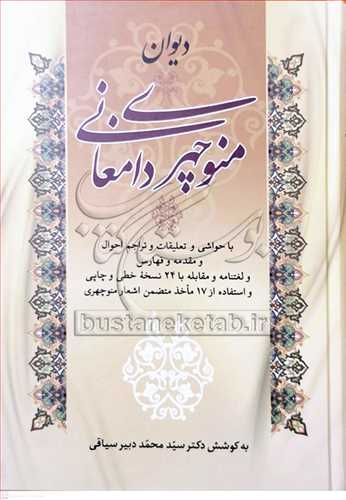 دیوان
منوچهری دامغانی
با حواشی و تعلیقات و تراجم احوال
و مقدمه و فهارس
و لغتنامه و مقابله با ۲۴ نسخهٔ خطی و چاپی
و استفاده از ۱۷ مأخذ متضمن اشعار منوچهری
bustaneketab.ir
به کوشش دکتر سیّد محمّد دبیر سیاقی